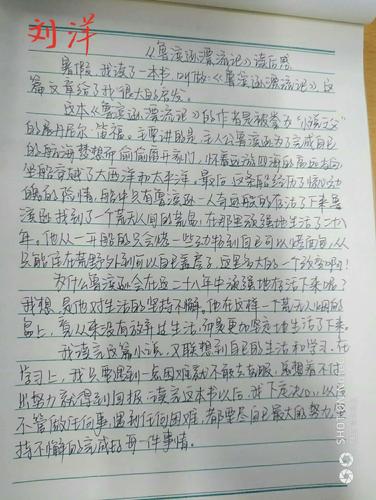 刘洋
《鲁滨逊漂流记》读后感
暑假,我读了一本书,叫做《鲁滨逊漂流记》这
篇文章给了我很大的启发。
这本《鲁滨逊漂流记》的作者是被誉为"小说之父"
的展丹尼尔·笛福。主要讲的是主人公鲁滨逊为了完成自己
的航海梦想而偷偷离开家门,怀着远游四海的高远志向,
坐船穿越了大西洋和太平洋。最后这条船经历了惊心动
魄的险情,船中只有鲁滨逊一人奇迹般的存活了下来鲁
滨逊找到了一个荒无人间的荒岛,在那里顽强地生活了二十八
年。他从一开始的只会烤一些动物到自己可以烤面包,从
只能住在荒野外到可以自己盖房子,这是多大的一个改变啊!
为什么鲁滨逊会在这二十八年中顽强地存活下来呢?
我想,是他对生活的坚持不懈。他在这样一个荒无人烟的
岛上,看从来没有放弃过生活,而是更加坚定地生活了下来。
我读完这篇小说,又联想到自己的生活和学习,在
学习上,我只要遇到一点困难就不敢去克服,总想着不付
出努力就得到回报。读完这本书以后,我下定决心,以后
不管做任何事,遇到任何困难,都要尽自己最大的努力,坚
持不懈的完成好每一件事情。
SHOT ON